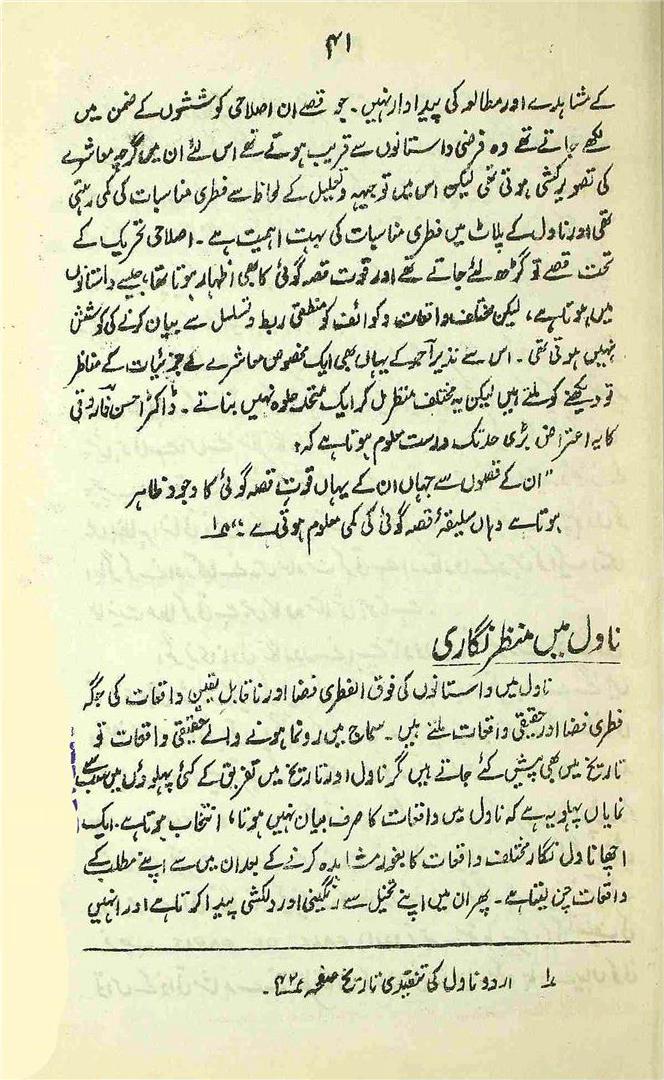 ۴۱
کے مشاہدے اور مطالعہ کی پیداوار نہیں۔ جو قصے ان اصلاحی کوششوں کے ضمن میں
لکھے جاتے تھے وہ فرضی داستانوں سے قریب ہوتے تھے اس لئے ان میں گرچہ معاشرے
کی تصویر کشی ہوتی تھی لیکن اس میں توجیہہ و تحلیل کے لحاظ سے فطری مناسبات کی کمی رہتی
تھی اور ناول کے پلاٹ میں فطری مناسبات کی بہت اہمیت ہے۔ اصلاحی تحریک کے
تحت قصے تو گڑھ لئے جاتے تھے اور قوت قصہ گوئی کا بھی اظہار ہوتا تھا، جیسے داستانوں
میں ہوتا ہے، لیکن مختلف واقعات و کوائف کو منطقی ربط و تسلسل سے بیان کرنے کی کوشش
نہیں ہوتی تھی۔ اس سے نذیر احمد کے یہاں بھی ایک مخصوص معاشرے کے جزئیات کے مناظر
تو دیکھنے کو ملتے ہیں لیکن یہ مختلف منظر مل کر ایک متحد جلوہ نہیں بناتے۔ ڈاکٹر احسن فاروقی
کا یہ اعتراض بڑی حد تک درست معلوم ہوتا ہے کہ:
"ان کے قصوں سے جہاں ان کے یہاں قوتِ قصہ گوئی کا وجود ظاہر
ہوتا ہے وہاں سلیقۂ قصہ گوئی کی کمی معلوم ہوتی ہے؛" ۱؎
ناول میں منظر نگاری
ناول میں داستانوں کی فوق الفطری فضا اور ناقابل یقین واقعات کی جگہ
فطری فضا اور حقیقی واقعات ملتے ہیں۔ سماج میں رونما ہونے والے حقیقی واقعات تو
تاریخ میں بھی پیش کئے جاتے ہیں مگر ناول اور تاریخ میں تفریق کے کئی پہلوؤں میں سب سے
نمایاں پہلو یہ ہے کہ ناول میں واقعات کا صرف بیان نہیں ہوتا، انتخاب ہوتا ہے۔ ایک
اچھا ناول نگار مختلف واقعات کا بغور مشاہدہ کرنے کے بعد ان میں سے اپنے مطلب کے
واقعات چن لیتا ہے۔ پھر ان میں اپنے تخیل سے رنگینی اور دلکشی پیدا کرتا ہے اور انہیں
۱؎ اردو ناول کی تنقیدی تاریخ صفحہ ۴۲۔